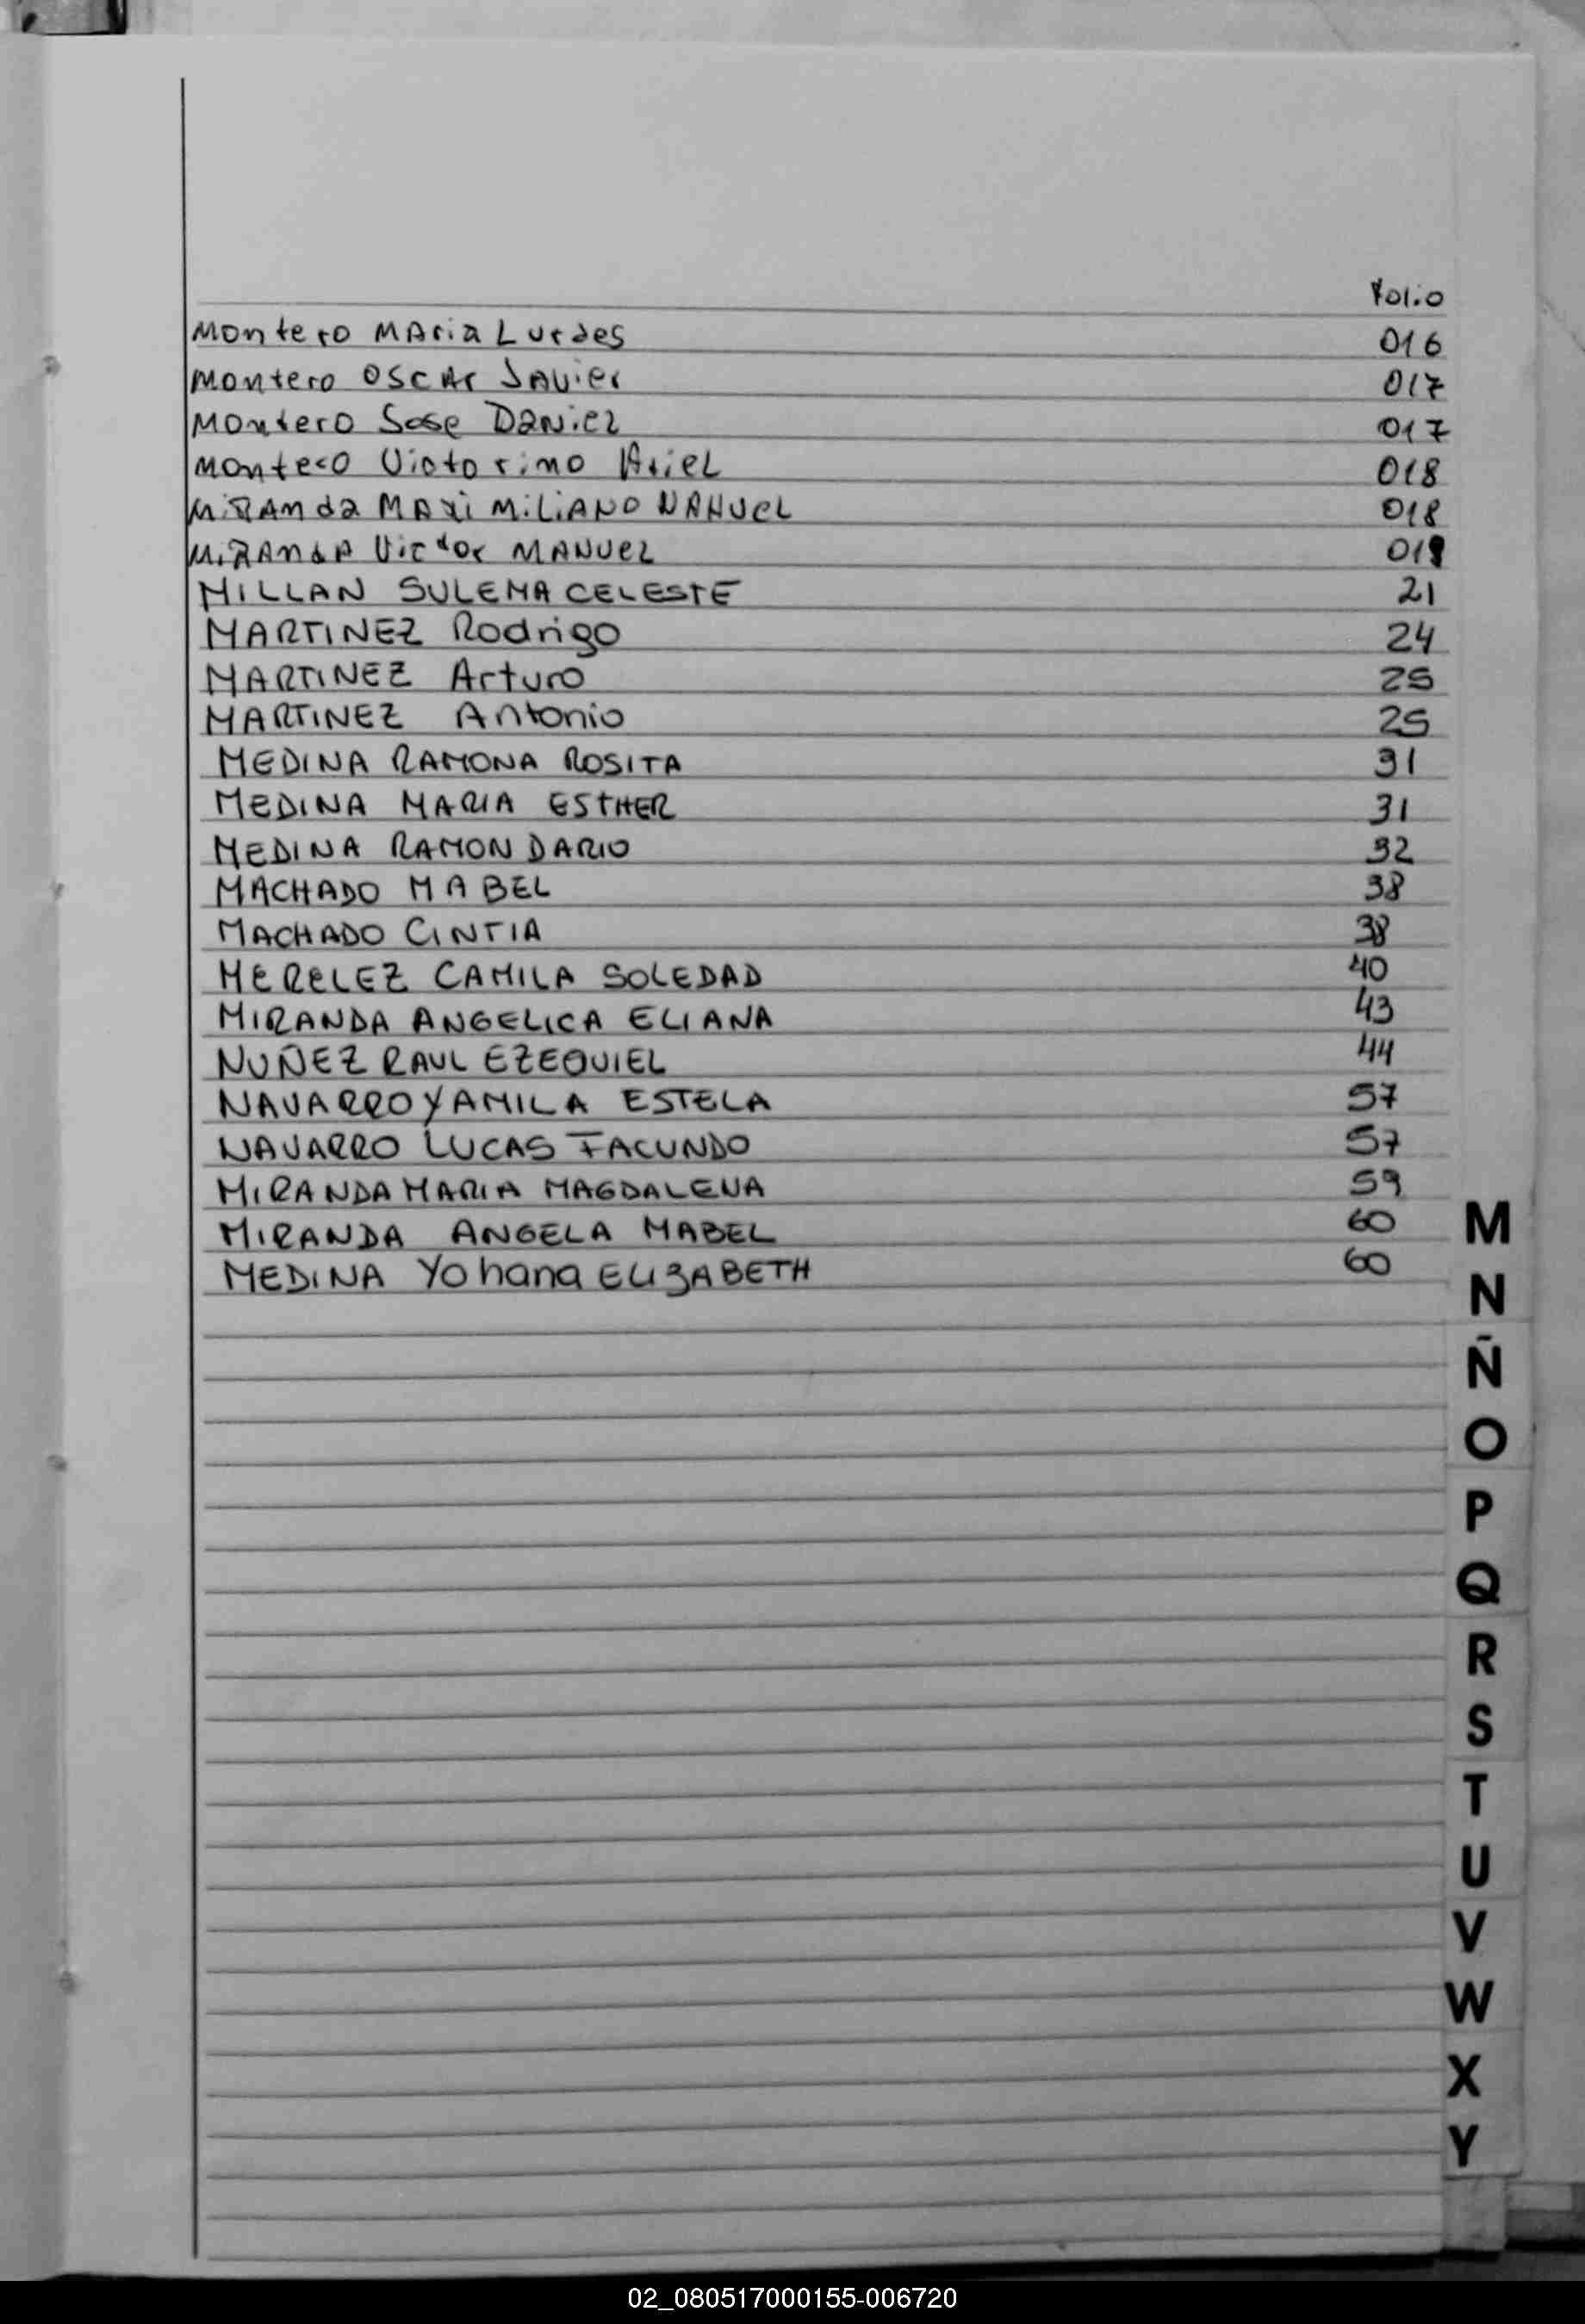 Folio
Montero MAria Lurdes 016
Montero OSCAr JAvier 017
Montero Jose DaNiel 017
Montero Victorino Ariel 018
MiRAnda MAXiMiLiANO NAHUeL 018
MiRAndA Victor MANUeL 019
MILLAN SULEMA CELESTE 21
MARTINEZ Rodrigo 24
MARTINEZ Arturo 25
MARTINEZ Antonio 25
MEDINA RAMONA ROSITA 31
MEDINA MARIA ESTHER 31
MEDINA RAMON DARIO 32
MACHADO MABEL 38
MACHADO CINTIA 38
MERELEZ CAMILA SOLEDAD 40
MIRANDA ANGELICA ELIANA 43
NUÑEZ RAUL EZEQUIEL 44
NAVARRO YAMILA ESTELA 57
NAVARRO LUCAS FACUNDO 57
MIRANDA MARIA MAGDALENA 59
MIRANDA ANGELA MABEL 60
MEDINA Yohana ELIZABETH 60
M
N
Ñ
O
P
Q
R
S
T
U
V
W
X
Y
02_080517000155-006720